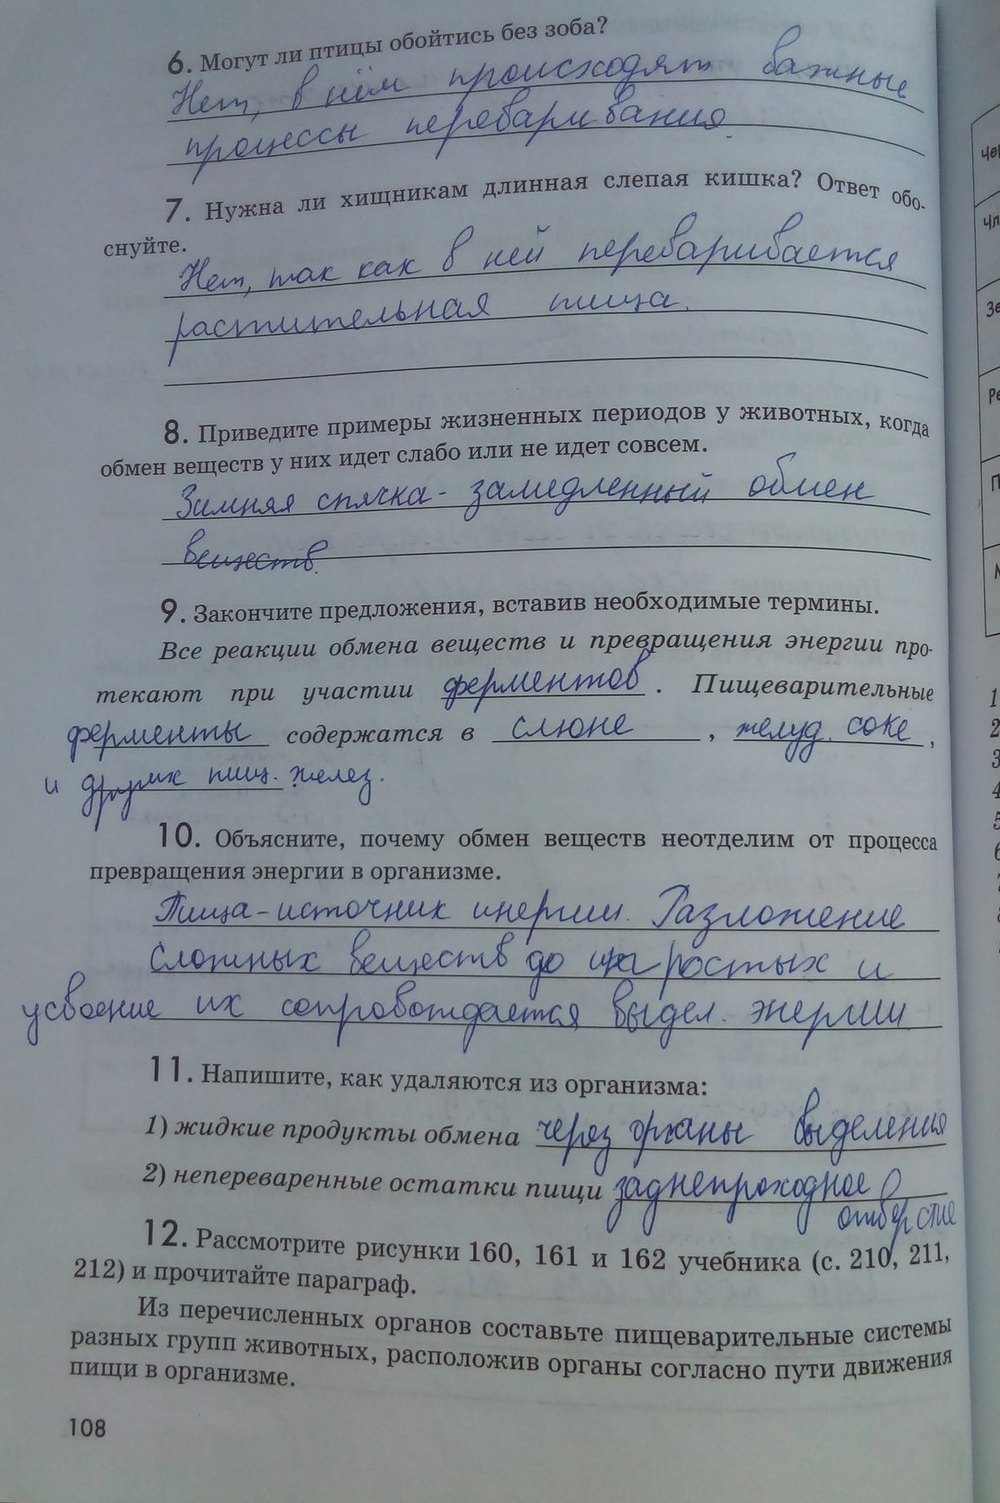 6. Могут ли птицы обойтись без зоба?
Нет, в нём происходят важные
процессы переваривания.
7. Нужна ли хищникам длинная слепая кишка? Ответ обо-
снуйте.
Нет, так как в ней переваривается
растительная пища.
8. Приведите примеры жизненных периодов у животных, когда
обмен веществ у них идет слабо или не идет совсем.
Зимняя спячка - замедленный обмен
веществ.
9. Закончите предложения, вставив необходимые термины.
Все реакции обмена веществ и превращения энергии про-
текают при участии ферментов. Пищеварительные
ферменты содержатся в слюне, желуд. соке,
и других пищ. желез.
10. Объясните, почему обмен веществ неотделим от процесса
превращения энергии в организме.
Пища - источник инергии. Разложение
сложных веществ до простых и
усвоение их сопровождается выдел. энергии
11. Напишите, как удаляются из организма:
1) жидкие продукты обмена через органы выделения
2) непереваренные остатки пищи заднепроходное
отверстие
12. Рассмотрите рисунки 160, 161 и 162 учебника (с. 210, 211,
212) и прочитайте параграф.
Из перечисленных органов составьте пищеварительные системы
разных групп животных, расположив органы согласно пути движения
пищи в организме.
108